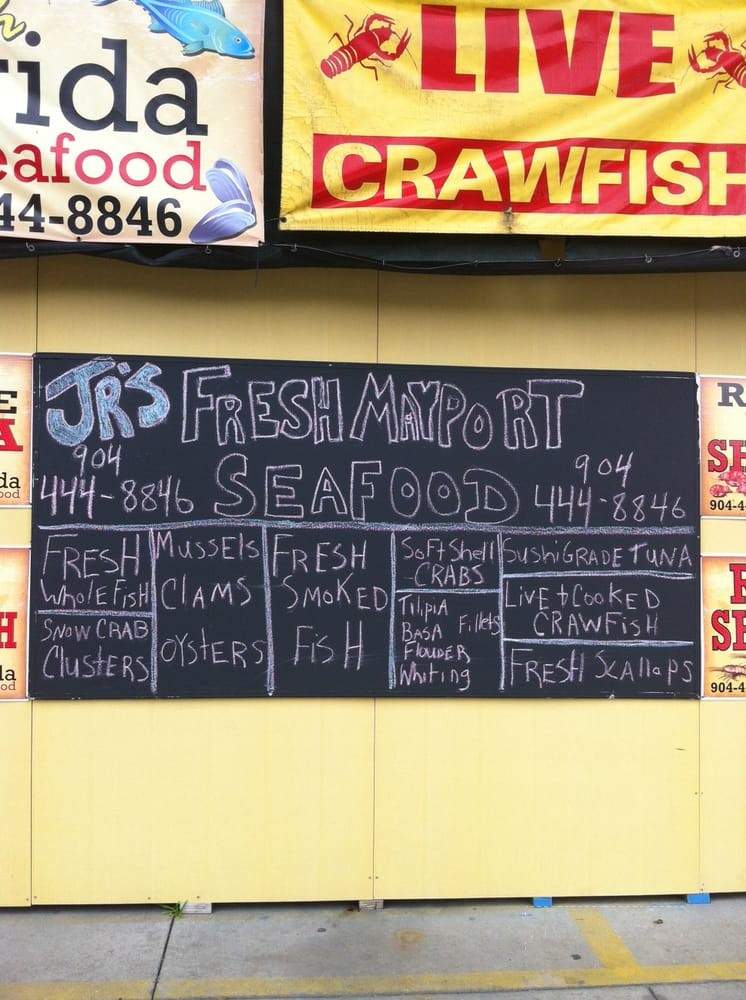 ida
eafood
44-8846
LIVE
CRAWFISH
JR'S FRESH MAYPORT
SEAFOOD
904
444-8846
904
444-8846
FRESH
Whole Fish
SNOW CRAB
Clusters
Mussels
Clams
Oysters
FRESH
SMOKED
FISH
Soft Shell
CRABS
Tilipia
Basa
Flouder
Whiting
Fillets
SUSHI GRADE TUNA
LIVE + COOKED
CRAWFISH
FRESH Scallops
E
A
da
ood
H
la
od
R
SH
904-4
F
SE
904-4